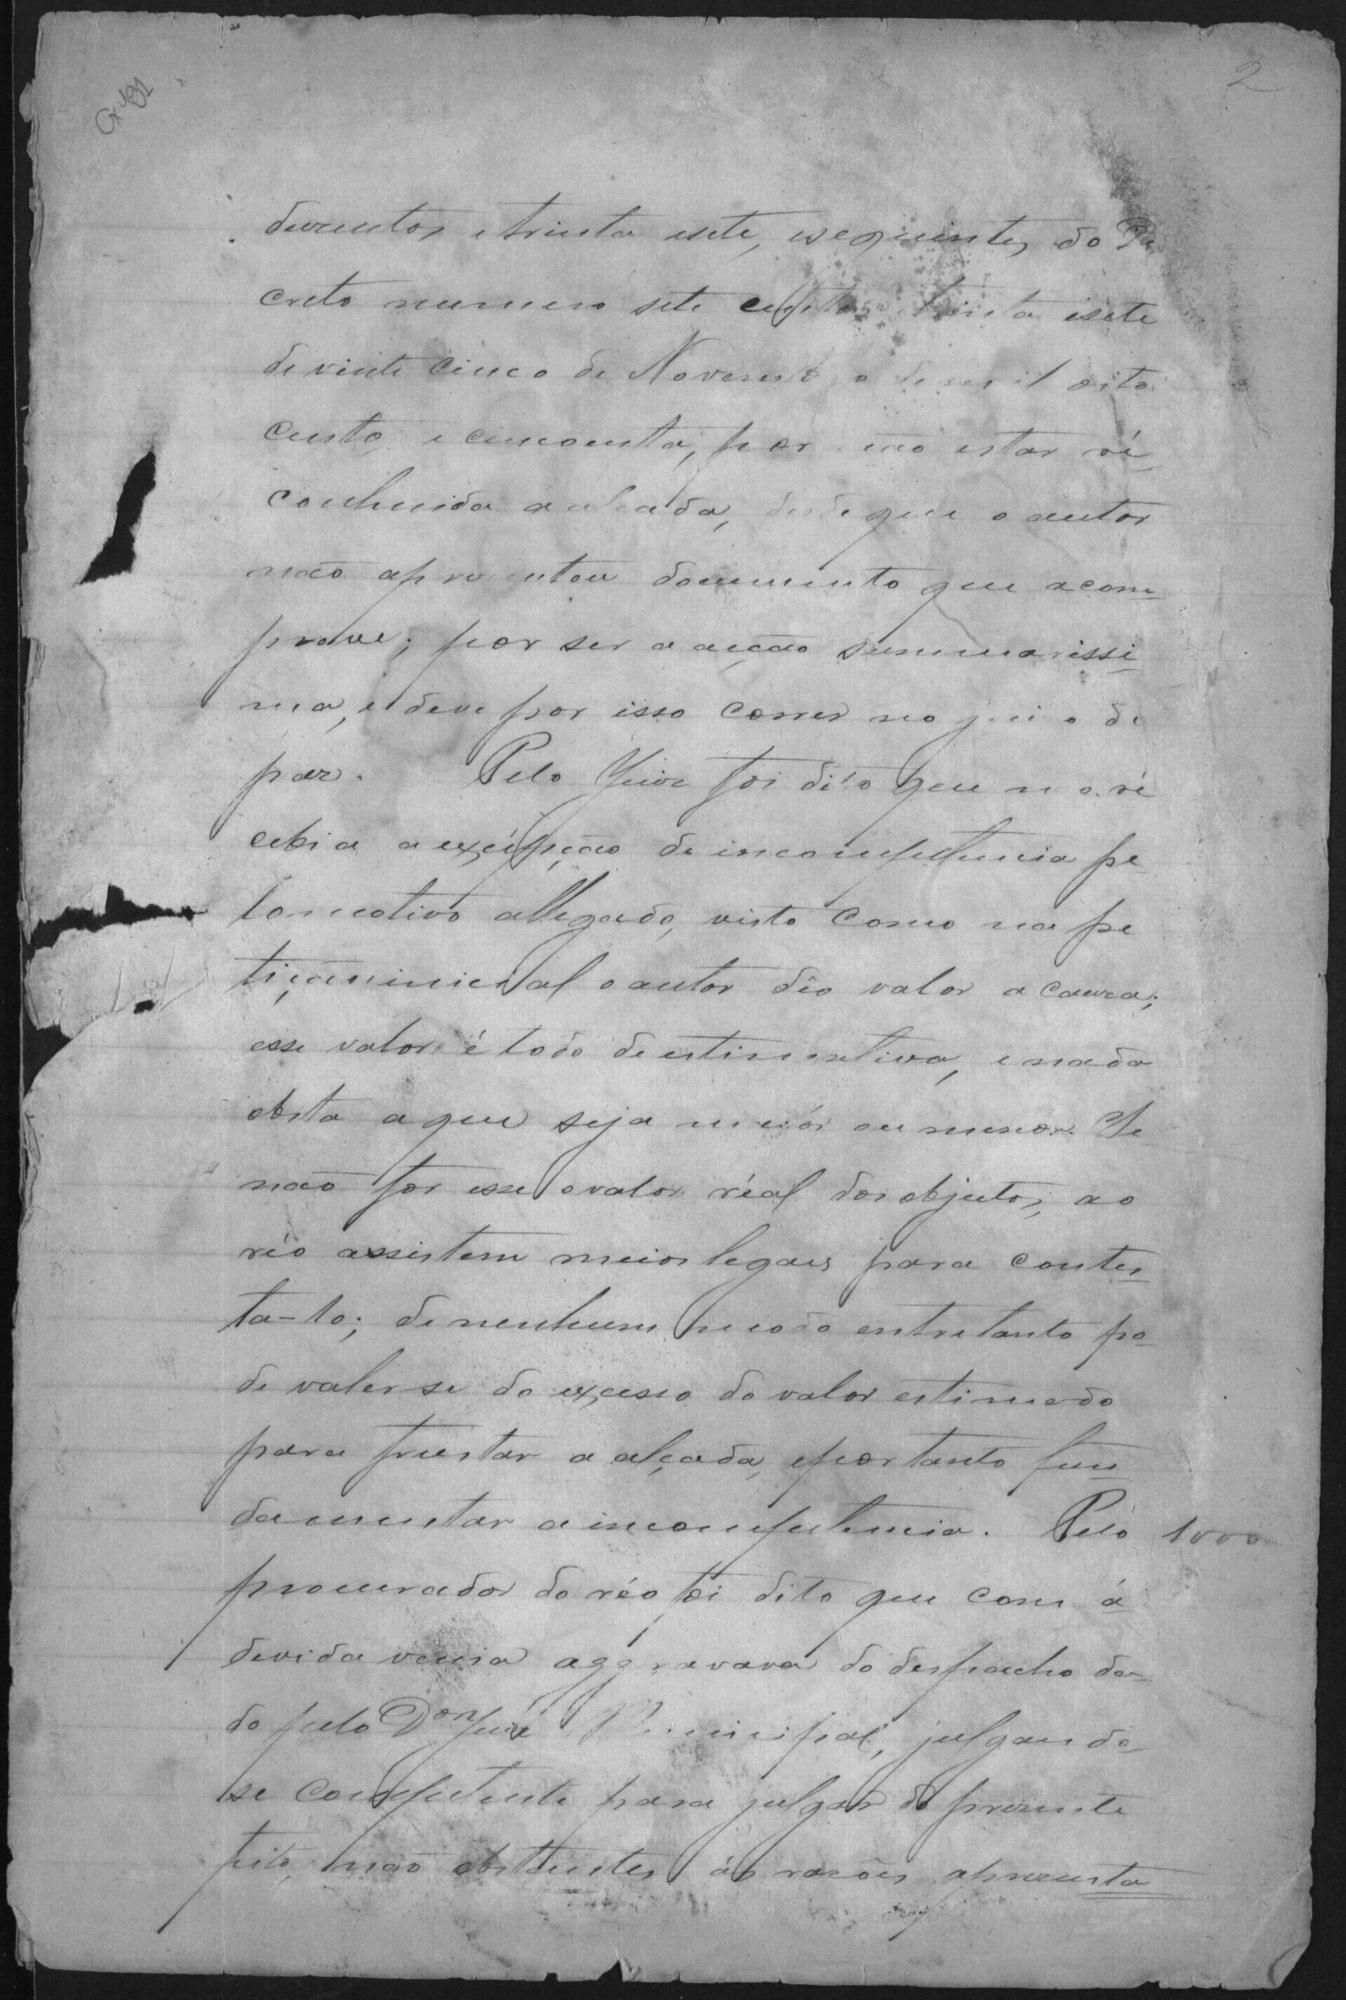 Cx 181
2
duzentos e trinta e sete, e seguintes do De
creto numero sete centos trinta e sete
de vinte cinco de Novembro de mil oito
centos e cincoenta, por não estar ré
conhecida a alçada, desde que o autor
não aprezentou documento que a com
prove; por ser a acção summarissi
ma, e deve por isso correr no juizo de
paz. Pelo Juiz foi dito que não ré
cebia a excépção de incompetencia pe
lo motivo allegado, visto como na pe
tição inicial o autor dêo valor a causa;
esse valor é todo de estimativa, e nada
obsta a que seja maiór ou menor. Se
não for esse o valor réal dos objetos, ao
réo assistem meios legaes para contes
ta-lo; de nenhum modo entretanto po
de valer se do excesso do valor estimado
para frustar a alçada, e portanto fun
damentar a incompetencia. Pelo 1000
procurador do réo foi dito que com á
devida venia aggravava do despacho da
do pelo Dor Juiz Municipal, julgando
se competente para julgar do prezente
feito, não obstantes ás razões aprezenta